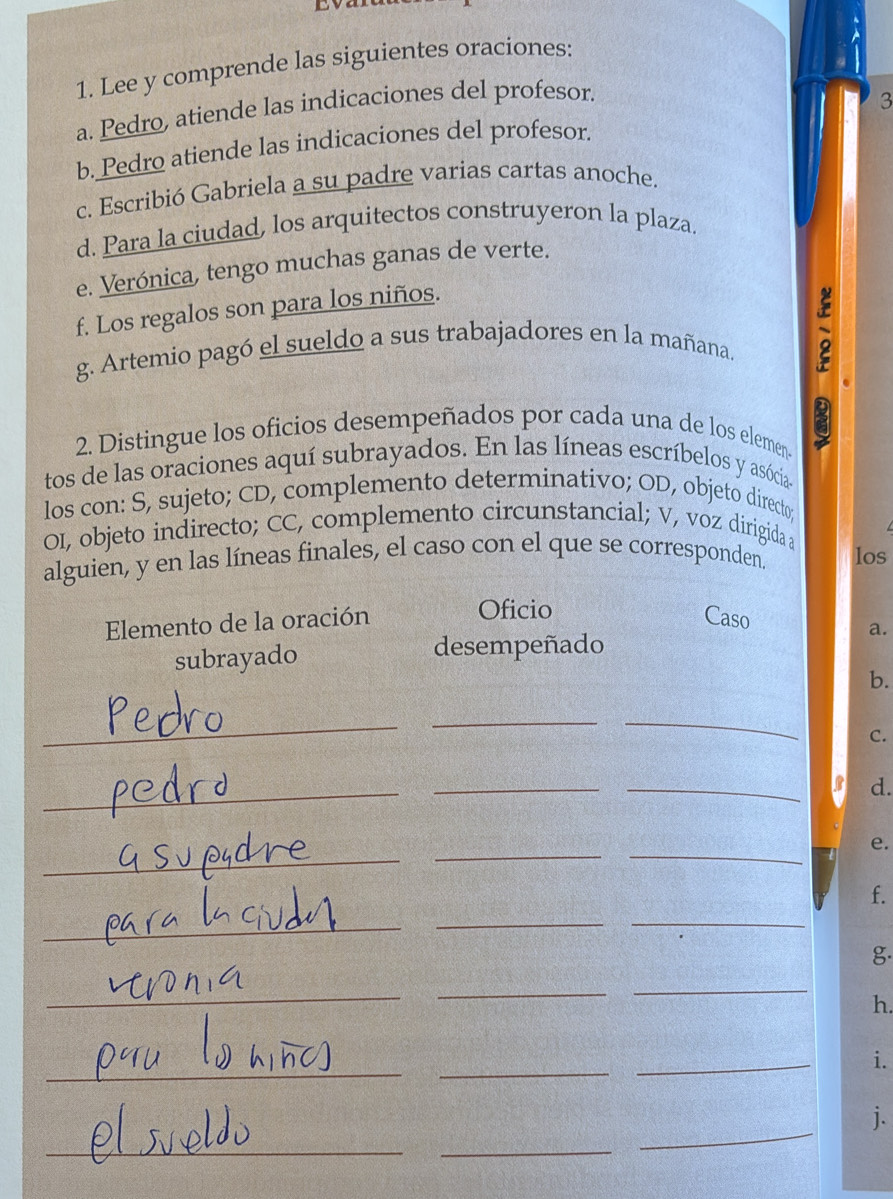 1. Lee y comprende las siguientes oraciones:
a. Pedro, atiende las indicaciones del profesor.
b. Pedro atiende las indicaciones del profesor.
c. Escribió Gabriela a su padre varias cartas anoche.
d. Para la ciudad, los arquitectos construyeron la plaza.
e. Verónica, tengo muchas ganas de verte.
f. Los regalos son para los niños.
g. Artemio pagó el sueldo a sus trabajadores en la mañana.
2. Distingue los oficios desempeñados por cada una de los elemen-
tos de las oraciones aquí subrayados. En las líneas escríbelos y asócia-
los con: S, sujeto; CD, complemento determinativo; OD, objeto directo;
OI, objeto indirecto; CC, complemento circunstancial; V, voz dirigida a
alguien, y en las líneas finales, el caso con el que se corresponden.
Elemento de la oración subrayado
Oficio desempeñado
Caso
Pedro
pedro
a su padre
para la ciudad
veronia
para lo niños
el sueldo
Fino / Fine
3
los
a.
b.
c.
d.
e.
f.
g.
h.
i.
j.